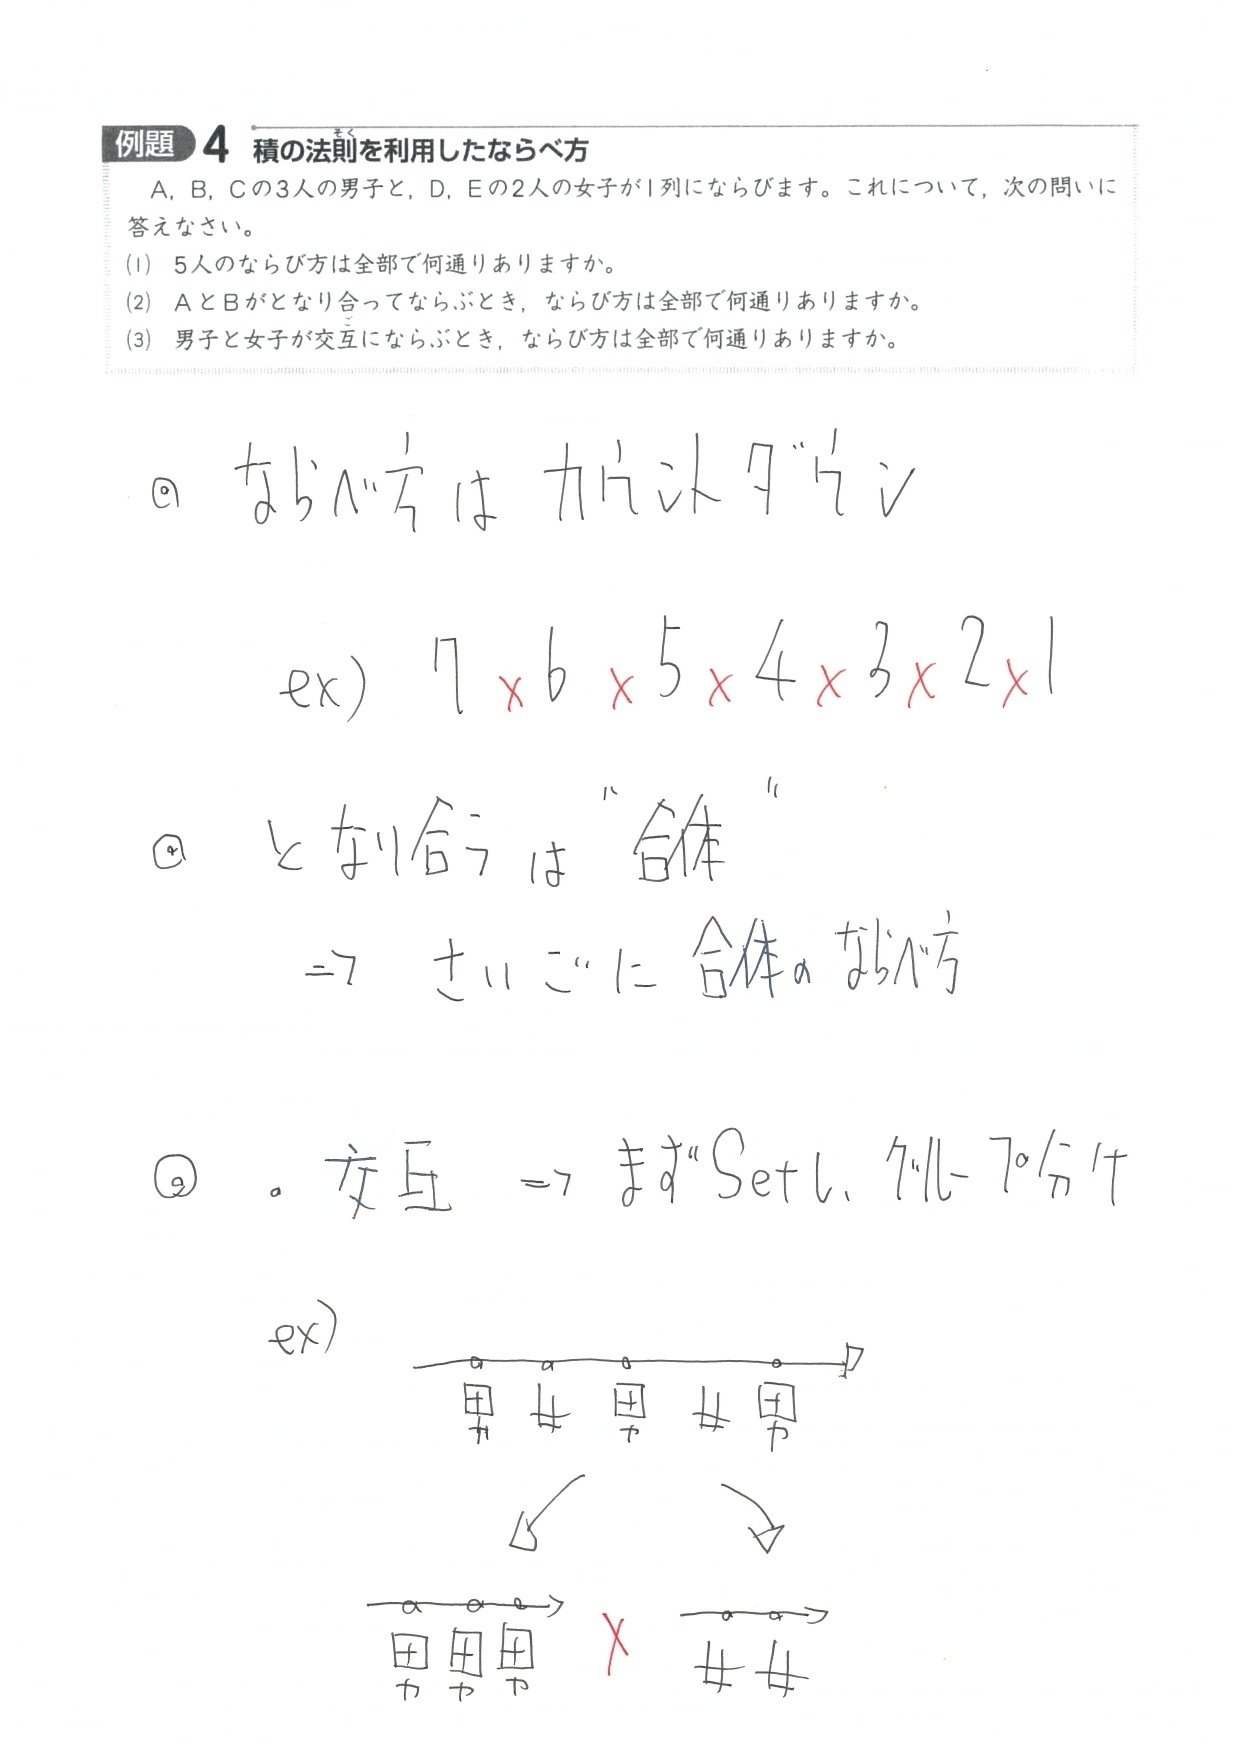 例題 4 積の法則を利用したならべ方
A，B，Cの3人の男子と，D，Eの2人の女子が1列にならびます。これについて，次の問いに
答えなさい。
(1) 5人のならび方は全部で何通りありますか。
(2) AとBがとなり合ってならぶとき，ならび方は全部で何通りありますか。
(3) 男子と女子が交互にならぶとき，ならび方は全部で何通りありますか。
ならべ方は カウントダウン
ex) 7 × 6 × 5 × 4 × 3 × 2 × 1
となり合うは "合体"
⇒ さいごに 合体のならべ方
・交互 ⇒ まずSetし、グループ分け
ex)
男 女 男 女 男
男 男 男 × 女 女